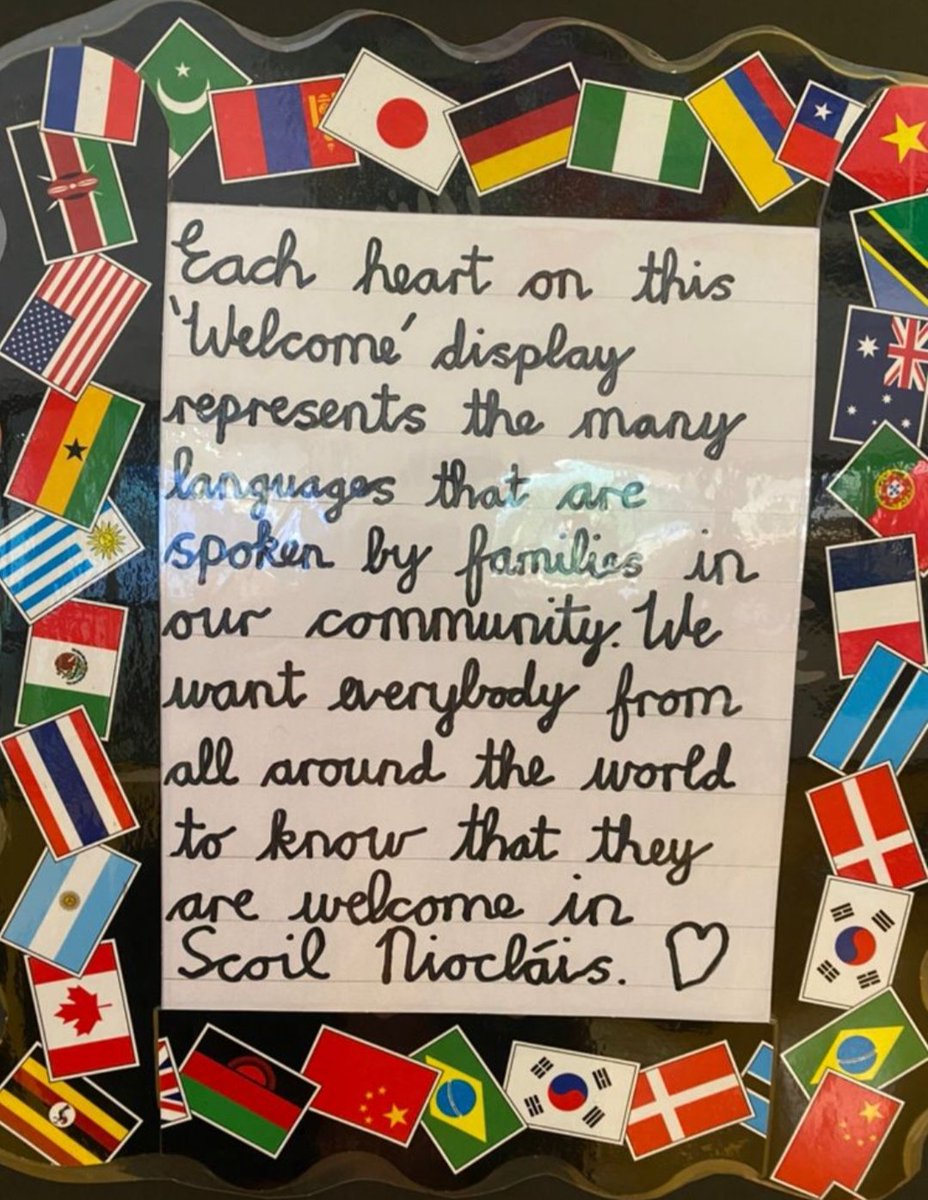 Each heart on this
'Welcome' display
represents the many
languages that are
spoken by families in
our community. We
want everybody from
all around the world
to know that they
are welcome in
Scoil Niocláis. ♡